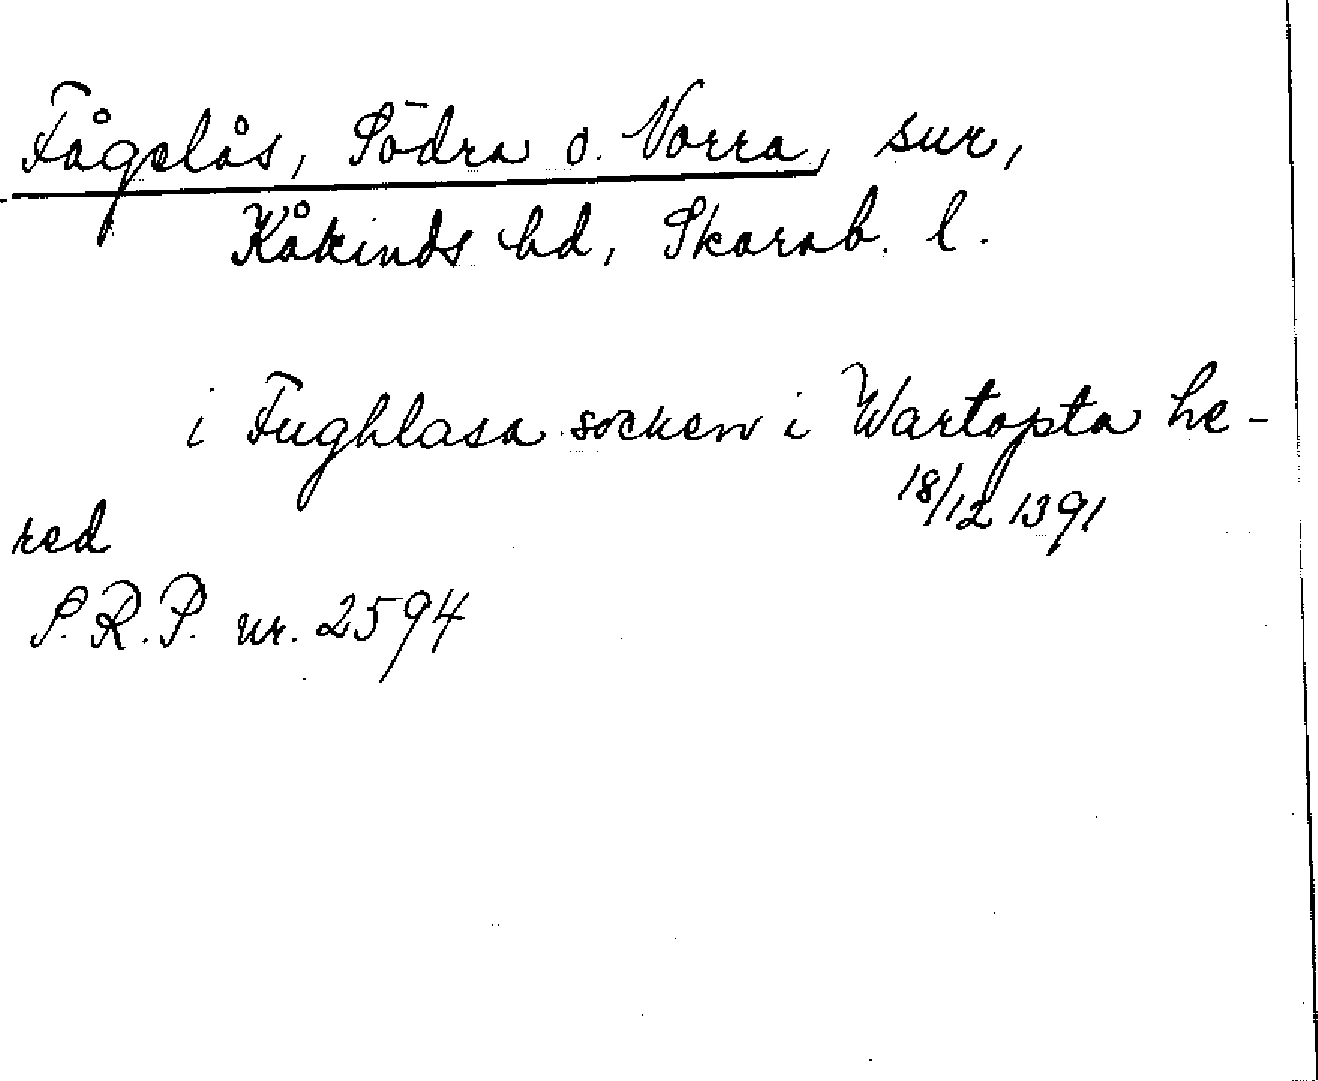 Fågelås, Södra o. Norra, snr,
Kåkinds hd, Skarab. l.
i Fughlasa socken i Wartopta he-
18/12 1391
red
S.R.P. nr. 2594